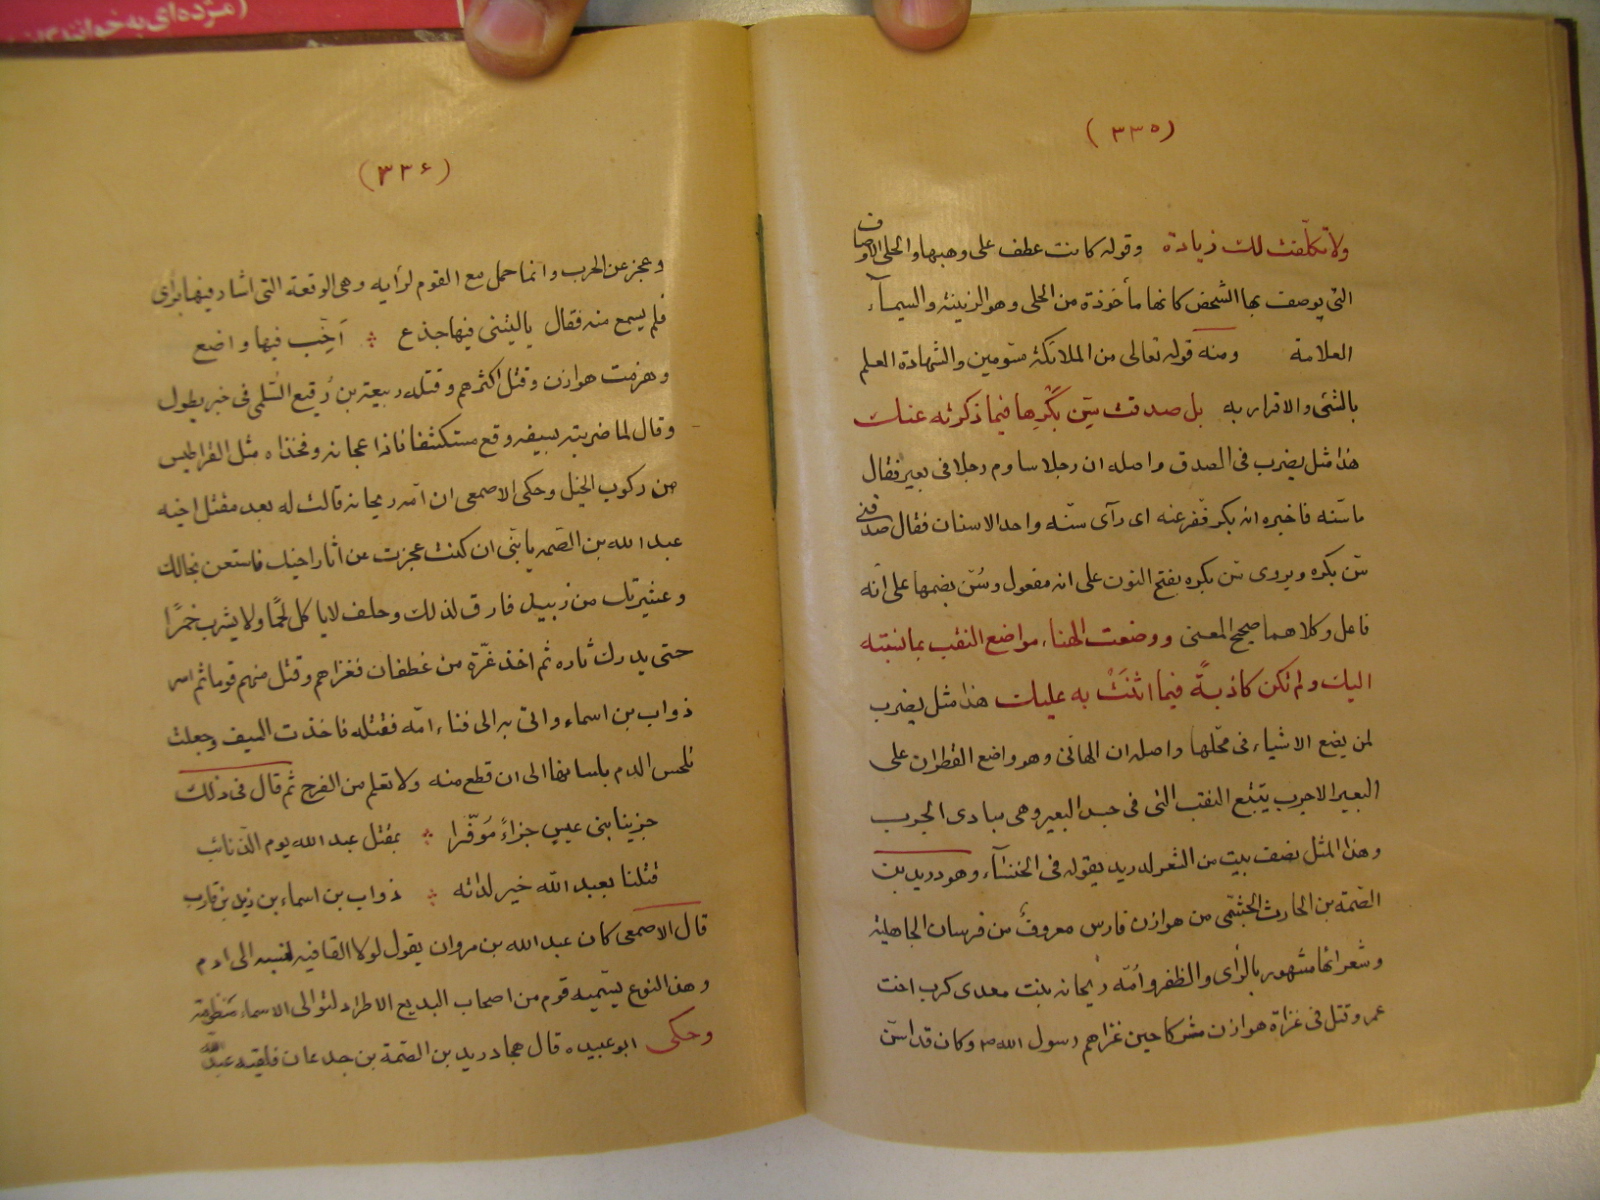 (مژده‌ای به خوانندگان
(٣٣٥)
ولا تكلفت لك زيادة وقوله كانت عطف على وهبها والحلى الاوصاف
التى يوصف بها الشخص كانها مأخوذة من الحلى وهو الزينة والسيمآء
العلامة ومنه قوله تعالى من الملائكة مسومين والشهادة العلم
بالشئ والاقرار به بل صدقت سن بكرها فيما ذكرته عنك
هذا مثل يضرب فى الصدق واصله ان رجلا ساوم رجلا فى بعير فقال
ما سنه فاخبره انه بكر ففر عنه اى رآى سنه واحد الاسنان فقال صدقنى
سن بكره ويروى سن بكره بفتح النون على انه مفعول وسن بضمها على انه
فاعل وكلاهما صحيح المعنى ووضعت الهناء مواضع النقب بما نسبته
اليك ولم تكن كاذبة فيما اثنت به عليك هذا مثل يضرب
لمن يضع الاشياء فى محلها واصله ان الهانئ وهو واضع القطران على
البعير الاجرب يتبع النقب التى فى جسد البعير وهى مبادى الجرب
وهذا المثل نصف بيت من الشعر لدريد يقوله فى الخنسآء وهو دريد بن
الصمة بن الحارث الجشمى من هوازن فارس معروف من فرسان الجاهلية
وشعرائها مشهور بالرأى والظفر وامه ريحانه بنت معدى كرب اخت
عمرو قتل فى غزاة هوازن مشركا حين غزاهم رسول الله ص وكان قد اسن
(٣٣۶)
وعجز عن الحرب وانما حمل مع القوم لرأيه وهى الوقعة التى اشار فيها برأى
فلم يسمع منه فقال ياليتنى فيها جذع ۞ اخب فيها واضع
وهزمت هوازن وقتل اكثرهم وقتله ربيعة بن رقيع السلمى فى خبر يطول
وقال لما ضربته بسيفه وقع مستكشفا فاذا عجانه وفخذاه مثل القراطيس
من ركوب الخيل وحكى الاصمعى ان امه ريحانه قالت له بعد مقتل اخيه
عبد الله بن الصمه يا بنى ان كنت عجزت عن اثار اخيك فاستعن بخالك
وعشيرتك من زبيد فارق لذلك وحلف لا ياكل لحما ولا يشرب خمرا
حتى يدرك ثاره ثم اخذ غرة من غطفان فغزاهم وقتل منهم قوما ثم اسر
ذواب بن اسماء واتى به الى فناء امه فقتله فاخذت السيف وجعلت
تلحس الدم بلسانها الى ان قطع منه ولا تعلم من الفرح ثم قال فى ذلك
جزينا بنى عبس جزاء موفرا ۞ بمقتل عبد الله يوم الذنائب
قتلنا بعبد الله خير لداته ۞ ذواب بن اسماء بن زيد بن قارب
قال الاصمعى كان عبد الله بن مروان يقول لولا القافيه لنسبه الى ادم
وهذا النوع يسميه قوم من اصحاب البديع الاطراد لتوالى الاسماء منظومة
وحكى ابو عبيده قال هجا دريد بن الصمة بن جدعان فلقيه عبد